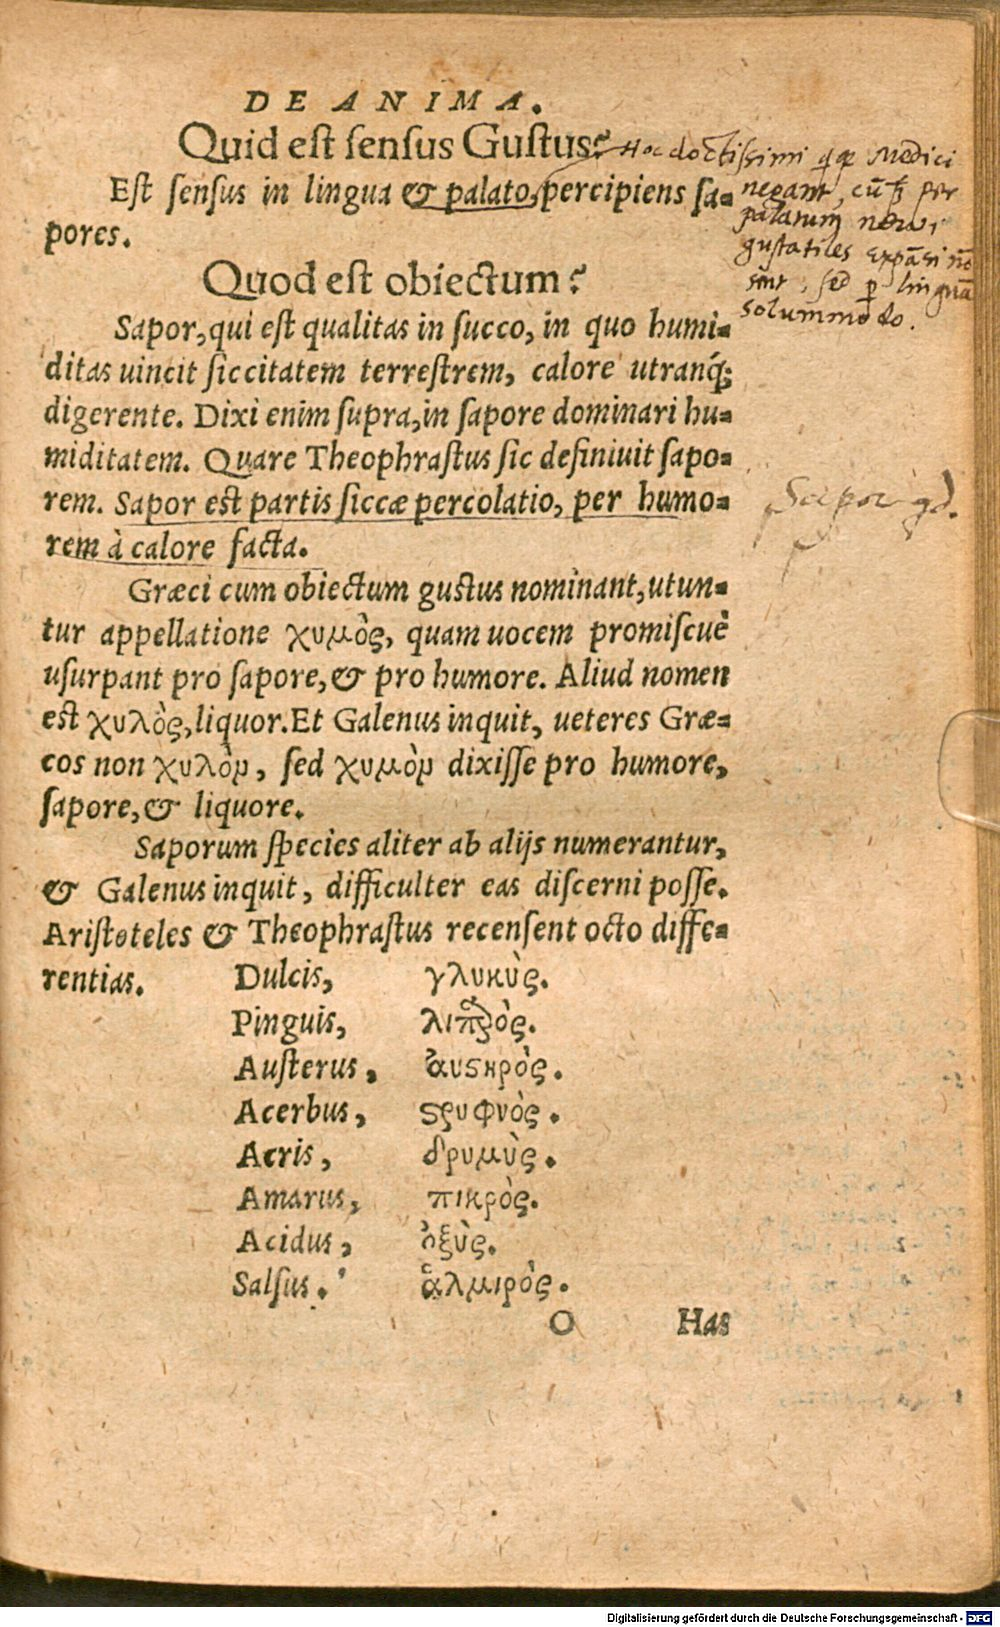 DE ANIMA.
Quid est sensus Gustus?
Est sensus in lingua & palato, percipiens sa-
pores.
Hoc doctissimi qq Medici
negant, cũ per
palatum nervi
gustatiles expãsi nõ
sint, sed p linguã
solummodo.
Quod est obiectum?
Sapor, qui est qualitas in succo, in quo humi-
ditas uincit siccitatem terrestrem, calore utranq́;
digerente. Dixi enim supra, in sapore dominari hu-
miditatem. Quare Theophrastus sic definiuit sapo-
rem. Sapor est partis siccæ percolatio, per humo-
rem à calore facta.
Sapor qd.
Græci cum obiectum gustus nominant, utun-
tur appellatione χυμὸς, quam uocem promiscuè
usurpant pro sapore, & pro humore. Aliud nomen
est χυλὸς, liquor. Et Galenus inquit, ueteres Græ-
cos non χυλὸν, sed χυμὸν dixisse pro humore,
sapore, & liquore.
Saporum species aliter ab alijs numerantur,
& Galenus inquit, difficulter eas discerni posse.
Aristoteles & Theophrastus recensent octo diffe-
rentias. Dulcis, γλυκὺς.
Pinguis, λιπαρὸς.
Austerus, ἀυϛηρὸς.
Acerbus, ϛρυφνὸς.
Acris, δρυμὺς.
Amarus, πικρὸς.
Acidus, ὀξὺς.
Salsus. ἁλμιρὸς.
O Has
Digitalisierung gefördert durch die Deutsche Forschungsgemeinschaft - DFG